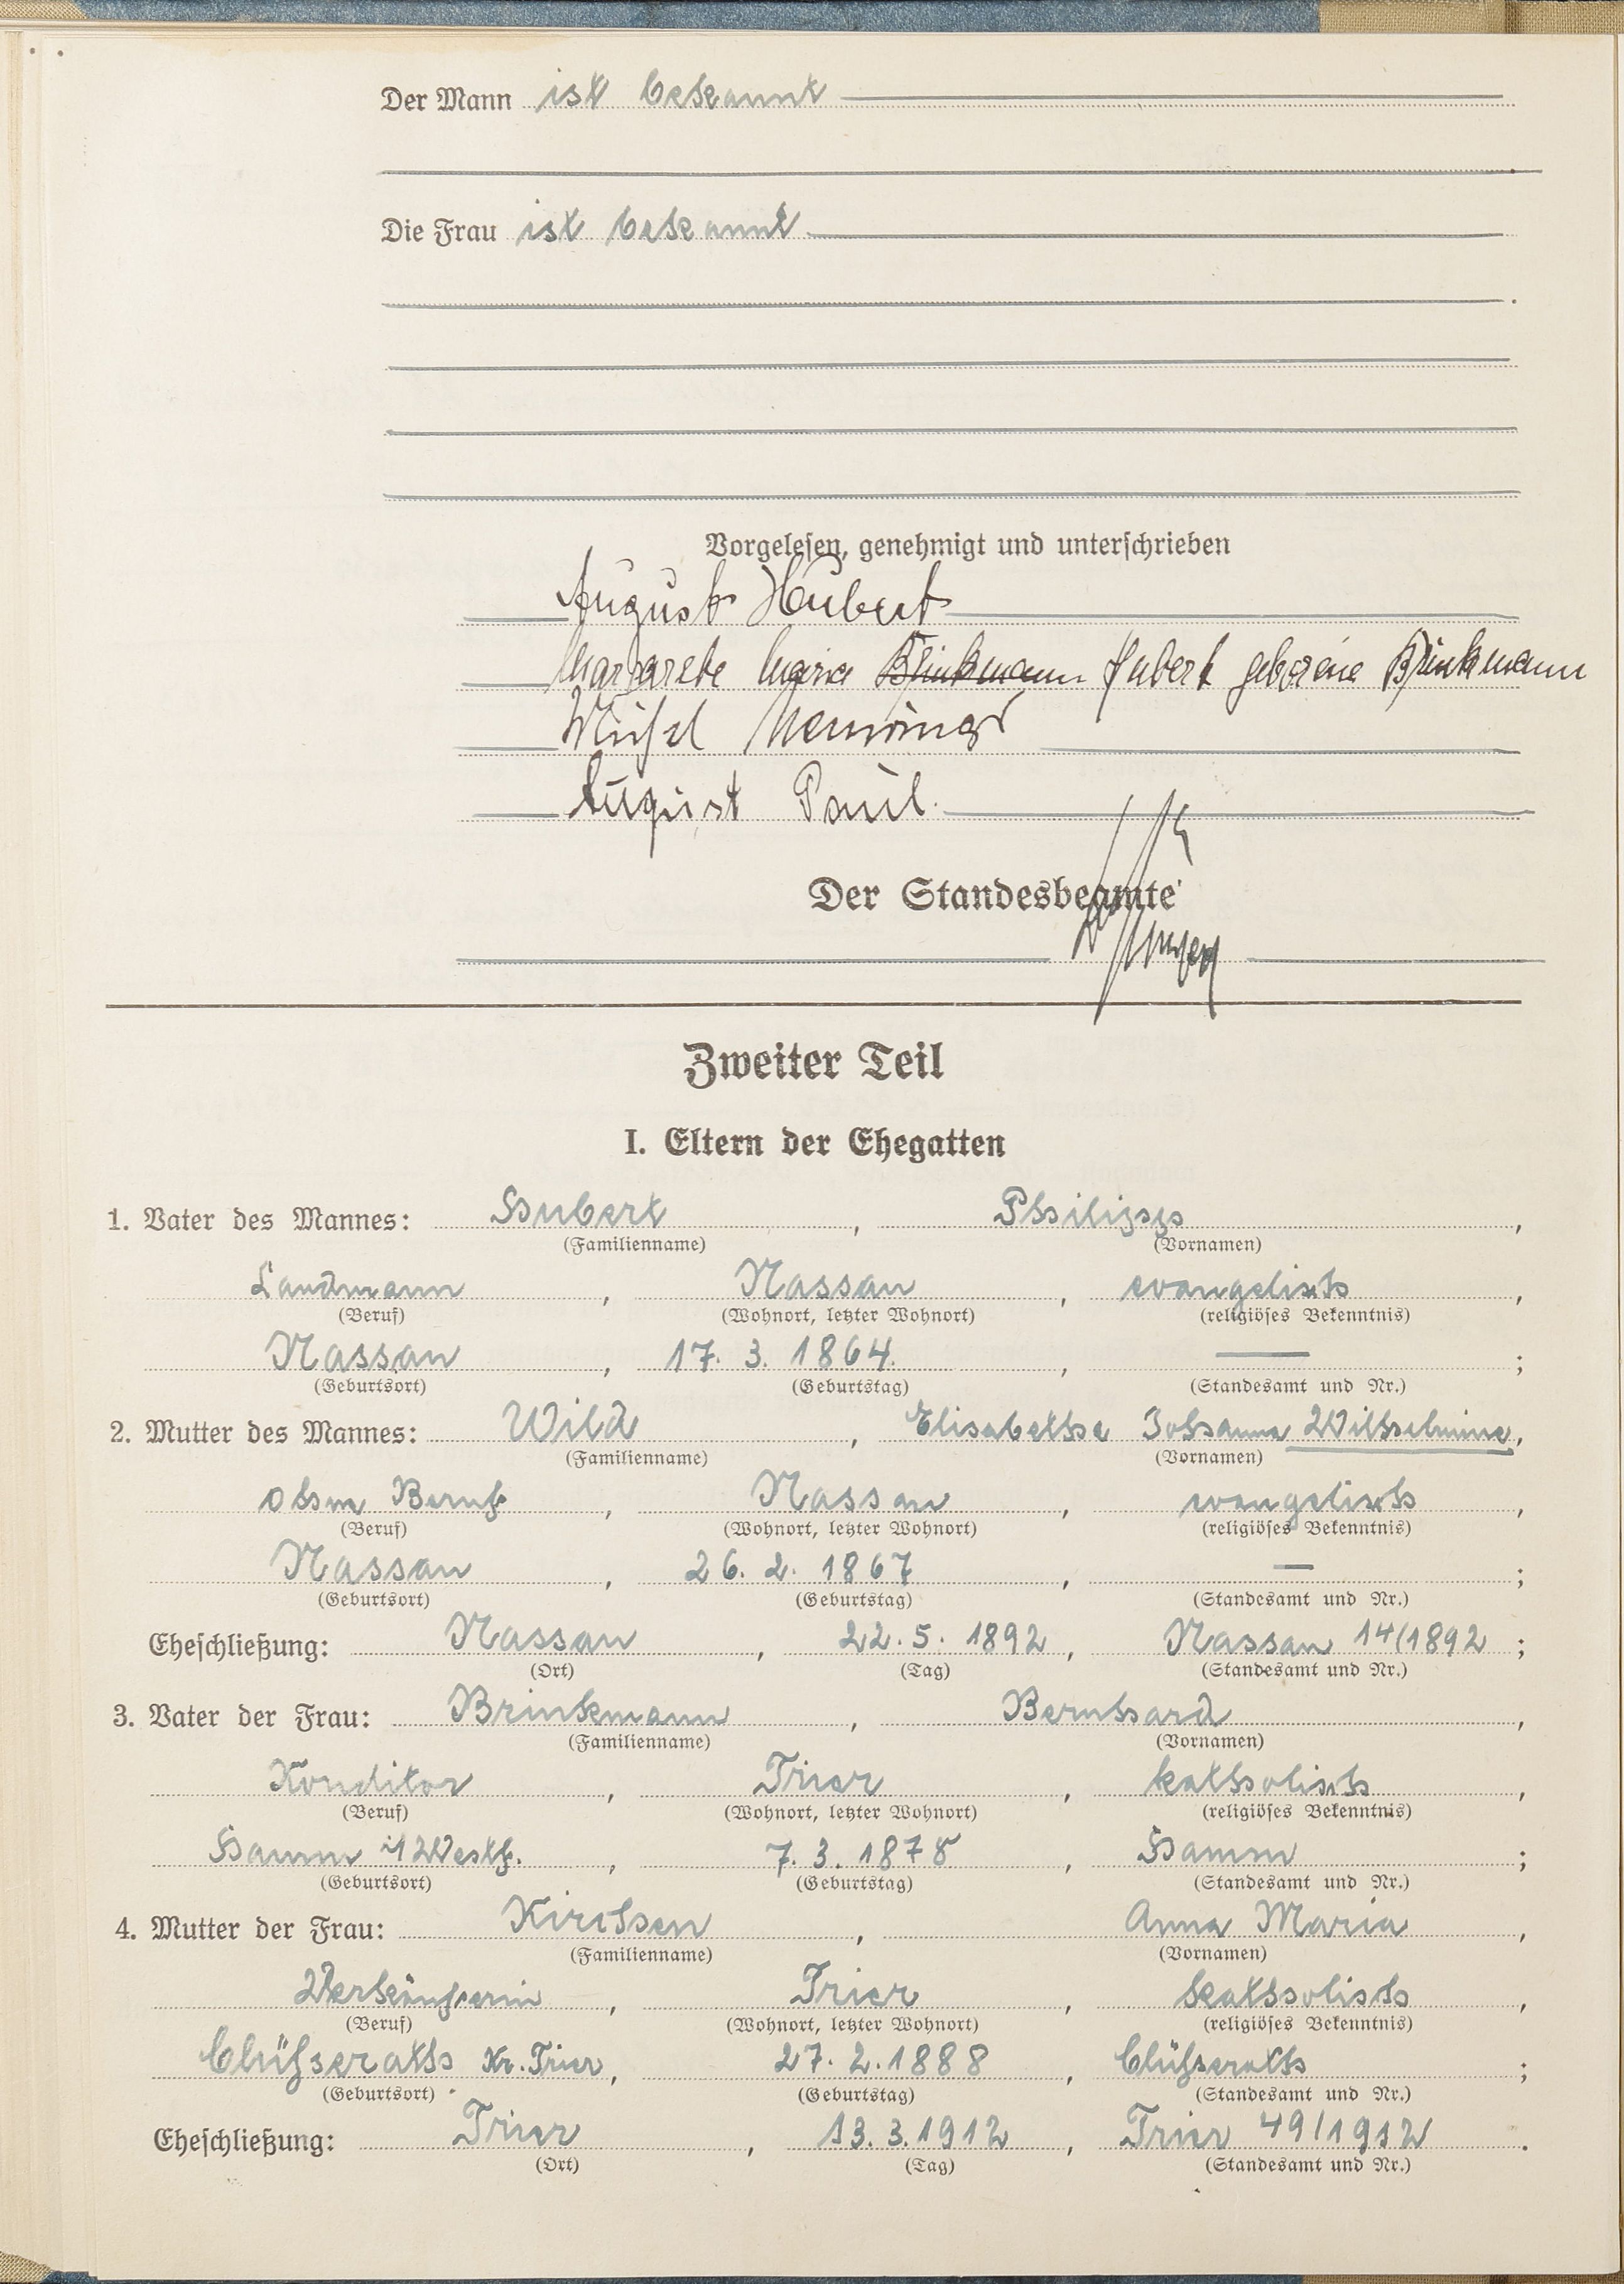 Der Mann ist bekannt
Die Frau ist bekannt
Vorgelesen, genehmigt und unterschrieben
August Hubert
Margarete Maria Brinkmann Hubert geborene Brinkmann
August Paul.
Der Standesbeamte
Zweiter Teil
I. Eltern der Ehegatten
1. Vater des Mannes: Hubert, Philipp,
(Familienname) (Vornamen)
Landmann, Nassau, evangelisch,
(Beruf) (Wohnort, letzter Wohnort) (religiöses Bekenntnis)
Nassau, 17. 3. 1864, — ;
(Geburtsort) (Geburtstag) (Standesamt und Nr.)
2. Mutter des Mannes: Wild, Elisabethe Johanna Wilhelmine,
(Familienname) (Vornamen)
ohne Beruf, Nassau, evangelisch,
(Beruf) (Wohnort, letzter Wohnort) (religiöses Bekenntnis)
Nassau, 26. 2. 1867, — ;
(Geburtsort) (Geburtstag) (Standesamt und Nr.)
Eheschließung: Nassau, 22. 5. 1892, Nassau 14/1892 ;
(Ort) (Tag) (Standesamt und Nr.)
3. Vater der Frau: Brinkmann, Bernhard,
(Familienname) (Vornamen)
Konditor, Trier, katholisch,
(Beruf) (Wohnort, letzter Wohnort) (religiöses Bekenntnis)
Hamm i/Westf., 7. 3. 1878, Hamm ;
(Geburtsort) (Geburtstag) (Standesamt und Nr.)
4. Mutter der Frau: Kirchen, Anna Maria,
(Familienname) (Vornamen)
Verkäuferin, Trier, katholisch,
(Beruf) (Wohnort, letzter Wohnort) (religiöses Bekenntnis)
Clüsserath Kr. Trier, 27. 2. 1888, Clüsserath ;
(Geburtsort) (Geburtstag) (Standesamt und Nr.)
Eheschließung: Trier, 13. 3. 1912, Trier 49/1912.
(Ort) (Tag) (Standesamt und Nr.)